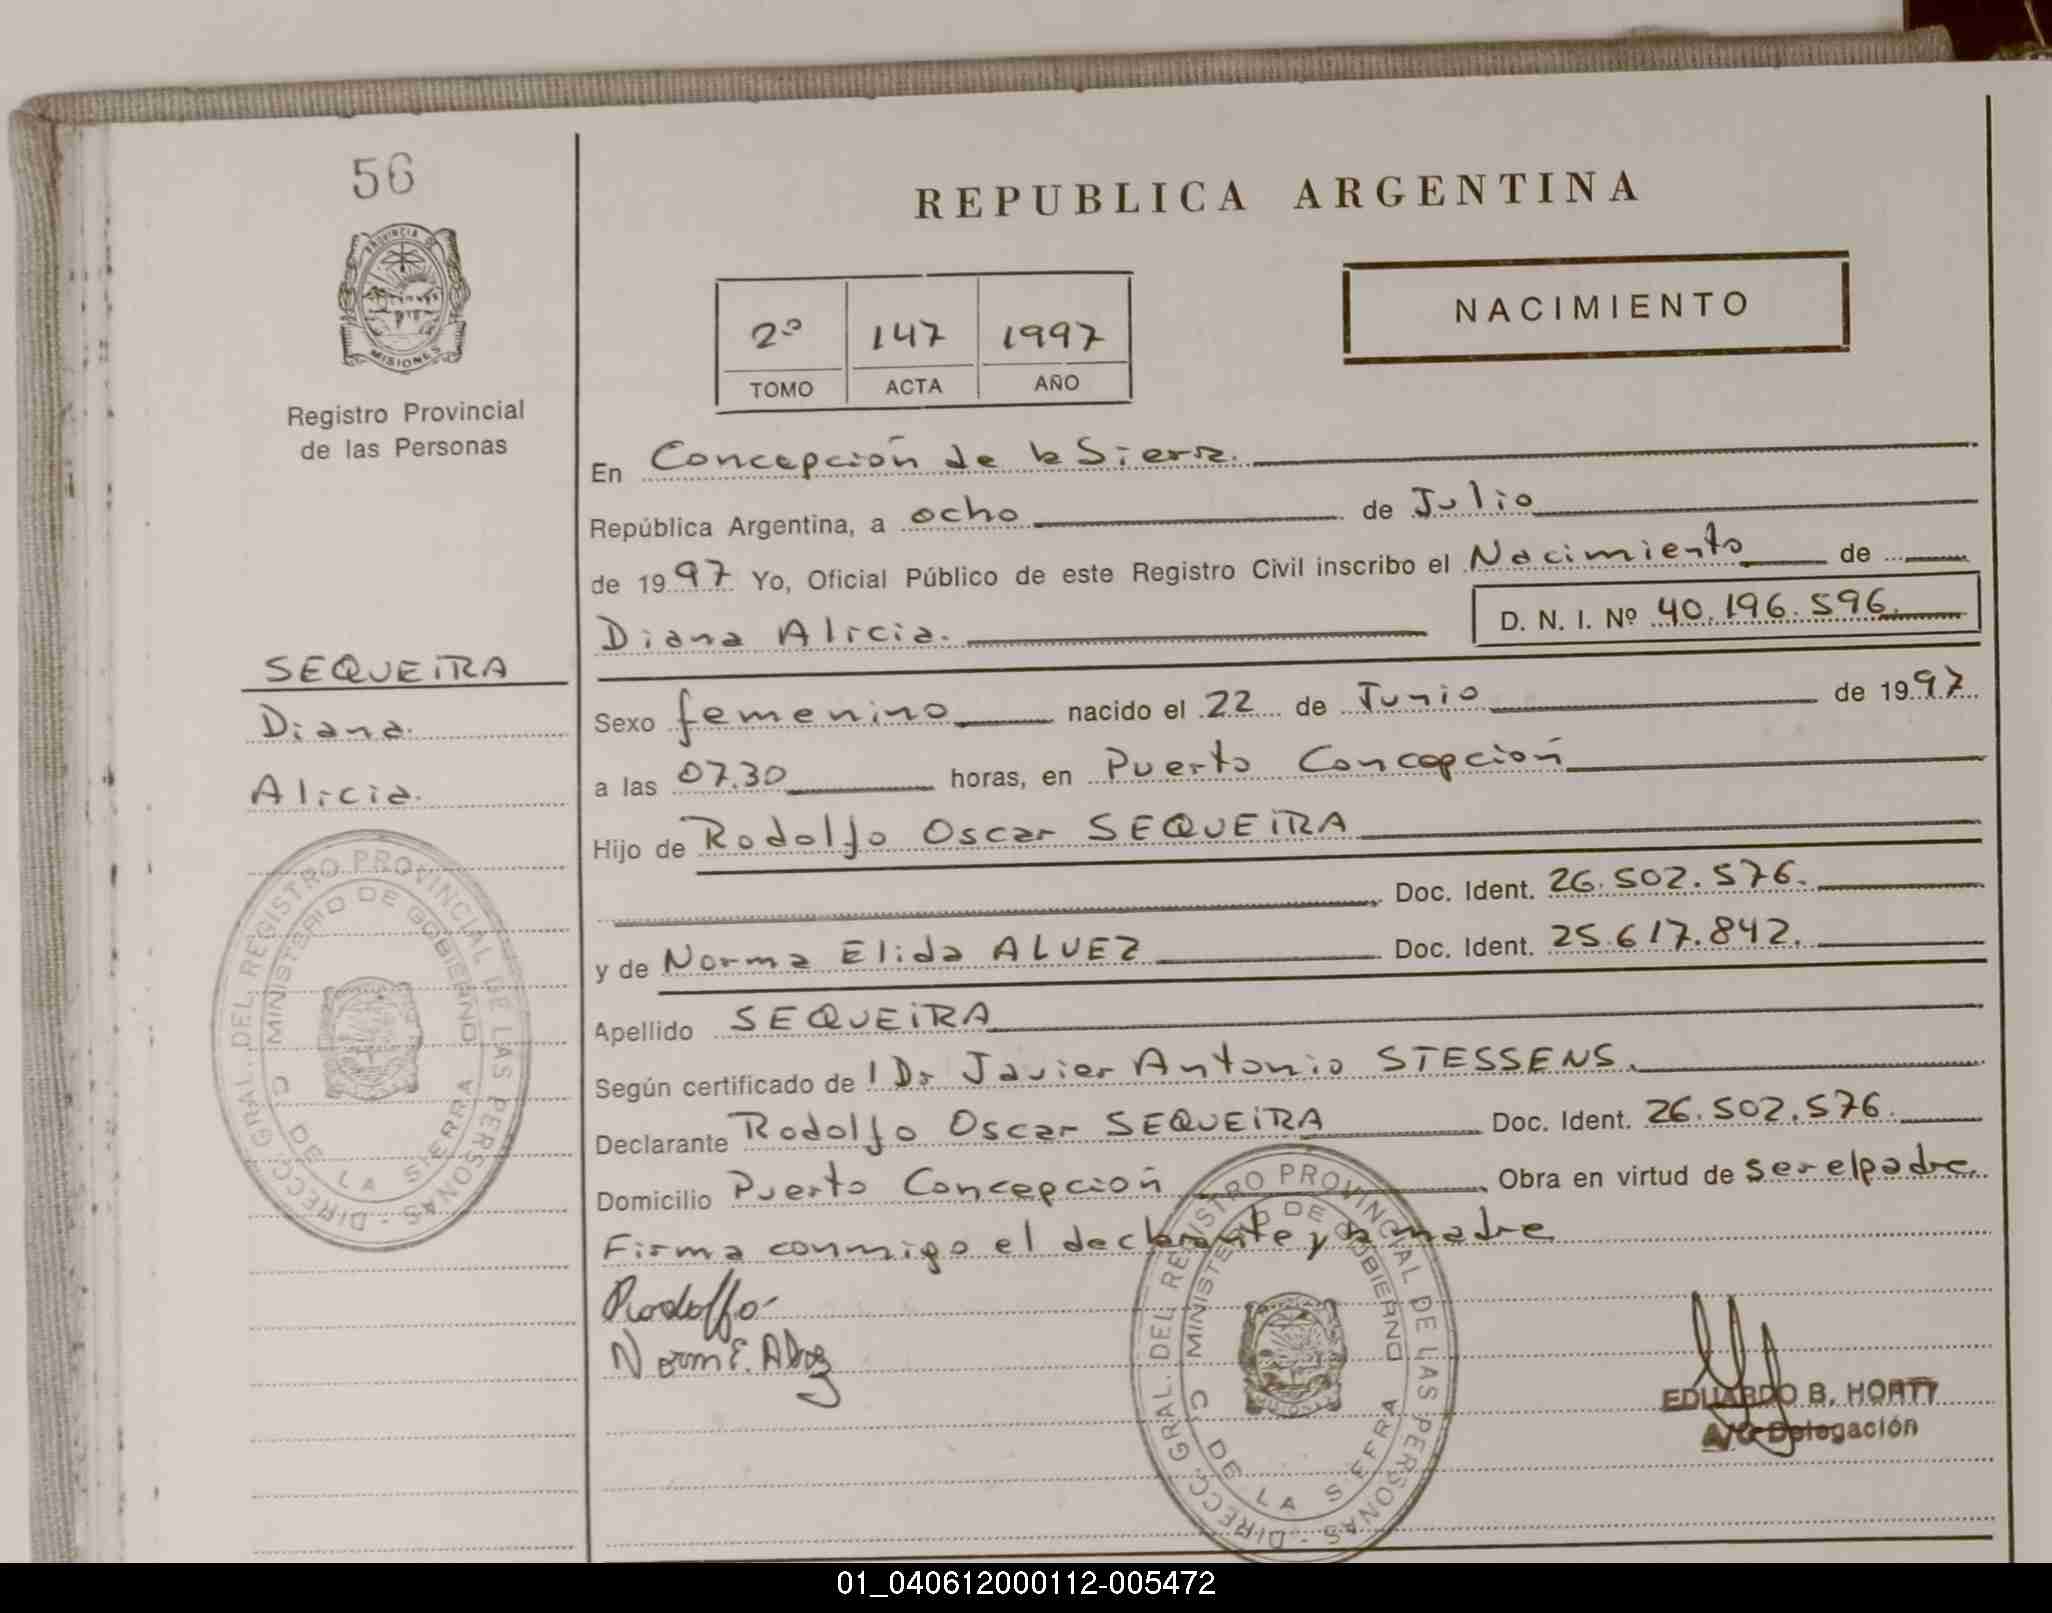 56
PROVINCIA DE
MISIONES
Registro Provincial
de las Personas
SEQUEIRA
Diana
Alicia.
DIRECC. GRAL. DEL REGISTRO PROVINCIAL DE LAS PERSONAS -
MINISTERIO DE GOBIERNO
C. DE LA SIERRA
REPUBLICA ARGENTINA
NACIMIENTO
2º 147 1997
TOMO ACTA AÑO
En Concepción de la Sierra.
República Argentina, a ocho de Julio
de 1997 Yo, Oficial Público de este Registro Civil inscribo el Nacimiento de
Diana Alicia. D. N. I. Nº 40.196.596.
Sexo femenino nacido el 22 de Junio de 1997
a las 07.30 horas, en Puerto Concepción
Hijo de Rodolfo Oscar SEQUEIRA
Doc. Ident. 26.502.576.
y de Norma Elida ALVEZ Doc. Ident. 25.617.842.
Apellido SEQUEIRA
Según certificado de l Dr Javier Antonio STESSENS.
Declarante Rodolfo Oscar SEQUEIRA Doc. Ident. 26.502.576.
Domicilio Puerto Concepción Obra en virtud de ser el padre.
Firma conmigo el declarante y la madre
Rodolfo
Norm E. Alvez
DIRECC. GRAL. DEL REGISTRO PROVINCIAL DE LAS PERSONAS -
MINISTERIO DE GOBIERNO
C. DE LA SIERRA
EDUARDO B. HORTT
A/C Delegación
01_040612000112-005472